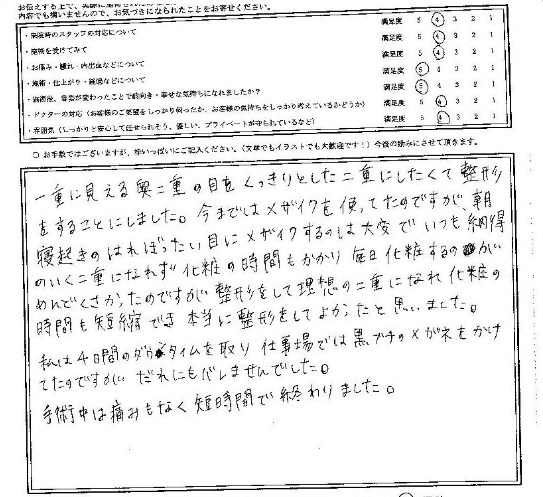 お伝えする上で、
内容でも構いませんので、お気づきになられたことをお書せください。
・来院時のスタッフの対応について 満足度 5 4 3 2 1
・施術を受けてみて 満足度 5 4 3 2 1
・お痛み・腫れ・内出血などについて 満足度 5 4 3 2 1
・施術・仕上がり・経過などについて 満足度 5 4 3 2 1
・施術後、容姿が変わったことで前向き・幸せな気持ちになれましたか？ 満足度 5 4 3 2 1
・ドクターの対応（お客様のご要望をしっかり伺ったか、お客様の気持ちをしっかり考えているかどうか） 満足度 5 4 3 2 1
・雰囲気（しっかりと安心して任せられそう、優しい、プライベートが守られているなど） 満足度 5 4 3 2 1
○ お手数ではございますが、枠いっぱいにご記入ください。（文章でもイラストでも大歓迎です！）今後の励みにさせて頂きます。
一重に見える奥二重の目をくっきりとした二重にしたくて整形
をすることにしました。今まではメザイクを使ってたのですが、朝
寝起きのはれぼったい目にメザイクするのは大変でいつも納得
のいく二重になれず化粧の時間もかかり毎日化粧するのが
めんどくさかったのですが整形をして理想の二重になれ化粧の
時間も短縮でき本当に整形をしてよかったと思いました。
私は4日間のダウンタイムを取り仕事場では黒ブチのメガネをかけ
てたのですがだれにもバレませんでした。
手術中は痛みもなく短時間で終わりました。